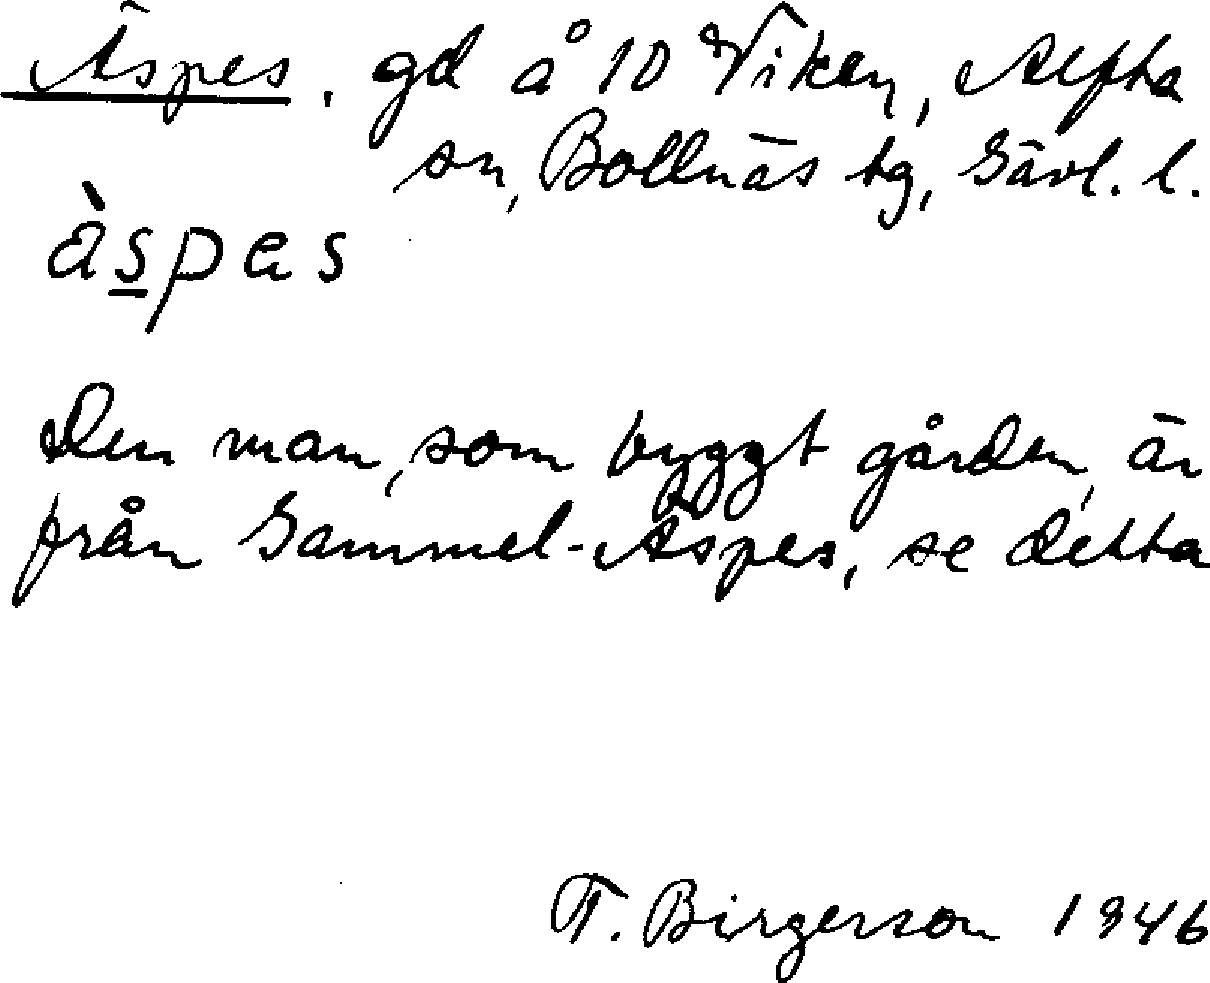 Äspes. gd å 10 Viken, Alfta
sn, Bollnäs tg, Gävl. l.
àspes
Den man, som byggt gården, är
från Gammel-Äspes, se detta
T. Birgerson 1946